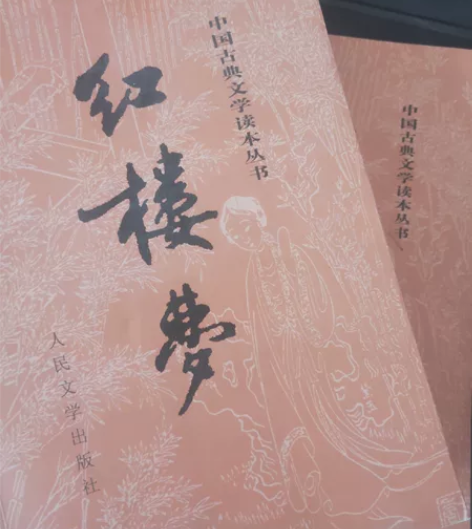 中国古典文学读本丛书
红楼梦
人民文学出版社
中国古典文学读本丛书